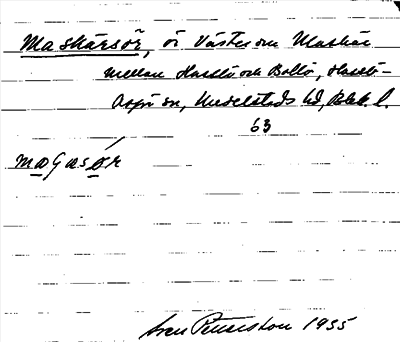 Maskärsör, ö väster om Maskär
mellan Hasslö och Bollö, Hasslö-
Aspö sn, Medelstads hd, Blek. l.
63
magasør
Sven Petersson 1935